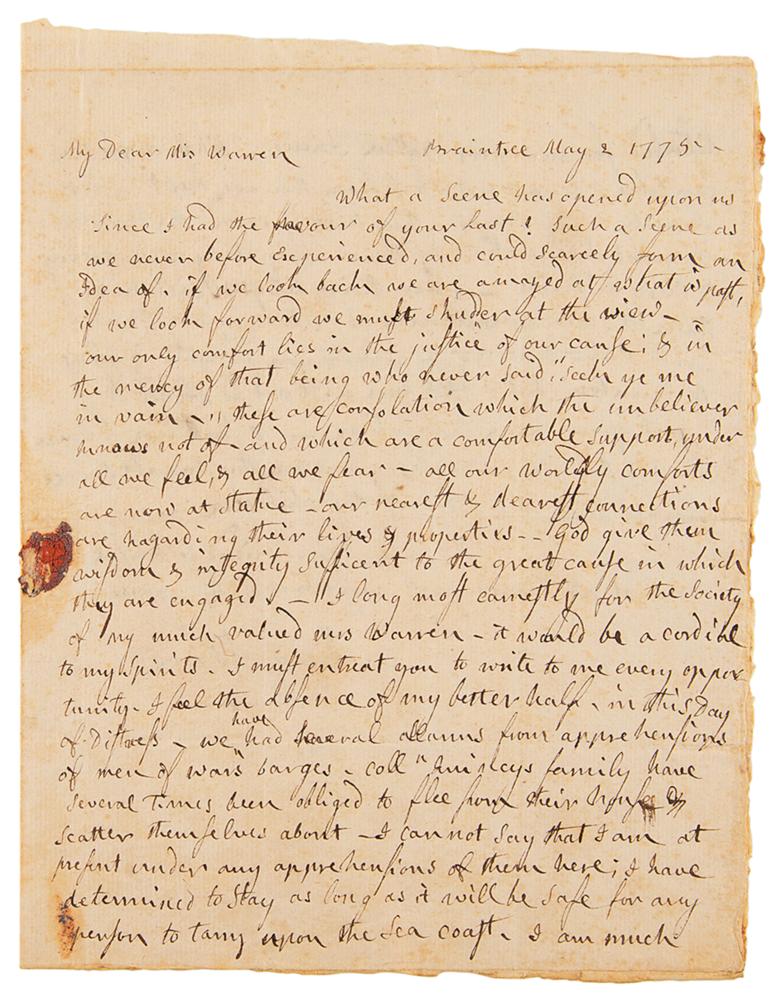 My Dear Mis Warren Braintree May 2 1775 -
What a Scene has opened upon us
Since I had the favour of your Last! Such a Scene as
we never before Experienced, and could scarcely form an
Idea of. if we look back we are amazed at what is past,
if we look forward we must shuder at the view -
our only comfort lies in the justice of our cause; & in
the mercy of that being who never said, "Seek ye me
in vain -" these are consolation which the unbeliever
knows not of - and which are a comfortable support, under
all we feel, & all we fear - all our worldly comforts
are now at stake - our nearest & dearest connections
are hazarding their lives & properties - - God give them
wisdom & integrity sufficent to the great cause in which
they are engaged. - I long most earnestly for the Society
of my much valued mrs Warren - it would be a cordial
to my Spirits. I must entreat you to write to me every oppor
tunity. I feel the absence of my better half - in this Day
of Distress - we have had Several allarms from apprehensions
of men of wars barges - coll" Quincys family have
Several Times been obliged to flee from their house &
Scatter themselves about - I cannot say that I am at
present under any apprehensions of them here; I have
determined to Stay as long as it will be safe for any
person to tarry upon the Sea coast. I am much